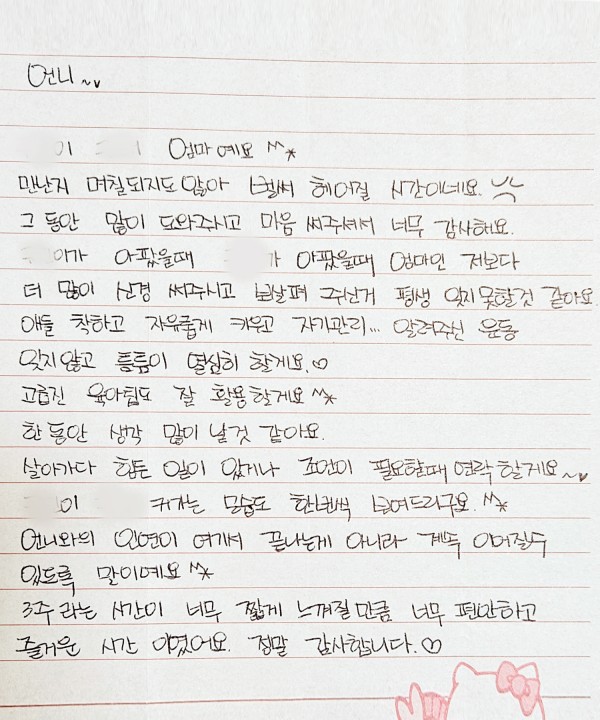 언니~♥
이 엄마예요 ^^*
만난지 며칠되지도 않아 벌써 헤어질 시간이네요.
그 동안 많이 도와주시고 마음 써주셔서 너무 감사해요.
아가 아팠을때 가 아팠을때 엄마인 저보다
더 많이 신경 써주시고 보살펴 주신거 평생 잊지못할것 같아요.
애들 착하고 자유롭게 키우고 자기관리... 알려주신 운동
잊지않고 틈틈이 열심히 할게요.♡
고급진 육아팁도 잘 활용할게요 ^^*
한동안 생각 많이 날것 같아요.
살아가다 힘든 일이 있거나 조언이 필요할때 연락할게요~♥
이 커가는 모습도 한번씩 보여드리구요. ^^*
언니와의 인연이 여기서 끝나는게 아니라 계속 이어질수
있도록 말이예요 ^^*
3주 라는 시간이 너무 짧게 느껴질만큼 너무 편안하고
즐거운 시간 이였어요. 정말 감사합니다.♡